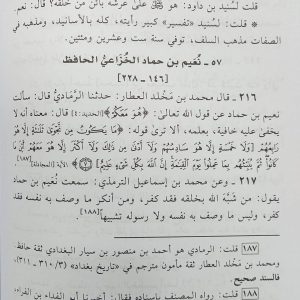 قلت لسُنيد بن داود: هو ﷿ على عرشه بائن من خلقه؟ قال: نعم.
* قلت: لسُنيد «تفسير» كبير رأيته، كله بالأسانيد، ومذهبه في
الصفات مذهب السلف، توفي سنة ست وعشرين ومئتين.
٥٧ ـ نُعَيم بن حماد الخُزَاعيُّ الحافظ
[١٤٦ ـ ٢٢٨]
٢١٦ ـ قال محمد بن مَخْلد العطار: حدثنا الرَّمَاديُّ قال: سألت
نعيم بن حماد عن قول الله تعالى: ﴿وَهُوَ مَعَكُمْ﴾ [الحديد: ٤] قال: معناه أنه لا
يخفى عليه خافية، بعلمه، ألا ترىٰ قوله: ﴿مَا يَكُونُ مِن نَّجْوَىٰ ثَلَاثَةٍ إِلَّا هُوَ
رَابِعُهُمْ وَلَا خَمْسَةٍ إِلَّا هُوَ سَادِسُهُمْ وَلَا أَدْنَىٰ مِن ذَٰلِكَ وَلَا أَكْثَرَ إِلَّا هُوَ مَعَهُمْ أَيْنَ مَا
كَانُوا ثُمَّ يُنَبِّئُهُم بِمَا عَمِلُوا يَوْمَ الْقِيَامَةِ إِنَّ اللَّهَ بِكُلِّ شَيْءٍ عَلِيمٌ﴾ الآية [المجادلة: ٧] [١٨٧]
٢١٧ ـ وعن محمد بن إسماعيل الترمذي: سمعت نُعيم بن حماد
يقول: من شَبَّه الله بخلقه فقد كفر، ومن أنكر ما وصف به نفسه فقد
كفر، وليس ما وصف به نفسه ولا رسوله تشبيهاً [١٨٨]
١٨٧ قلت: الرمادي هو أحمد بن منصور بن سيار البغدادي ثقة حافظ
ومحمد بن مَخْلد العطار ثقة مأمون مترجم في «تاريخ بغداد» (٣/ ٣١٠ ـ ٣١١)،
فالسند صحيح.
١٨٨ قلت: رواه المصنف بإسناده فقال: أخبرنا أبو الفداء بن الفراء،